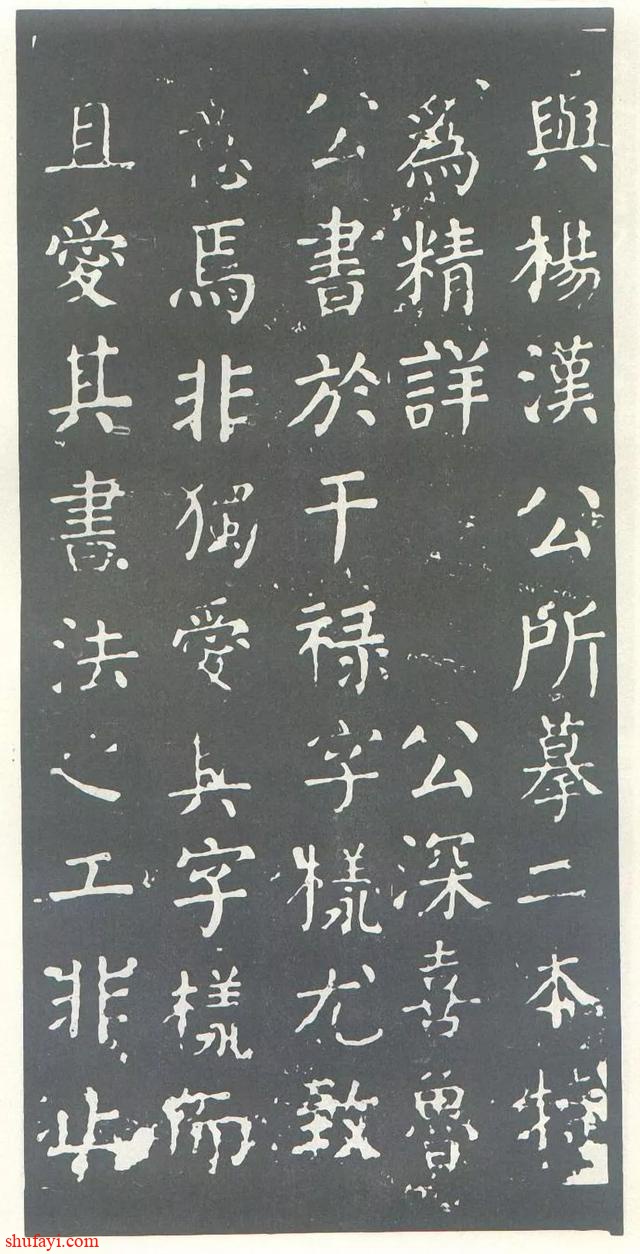 與楊漢公所摹二本特
為精詳 公深喜魯
公書於干禄字樣尤致
意焉非獨愛其字樣而
且愛其書法之工非止
shufayi.com